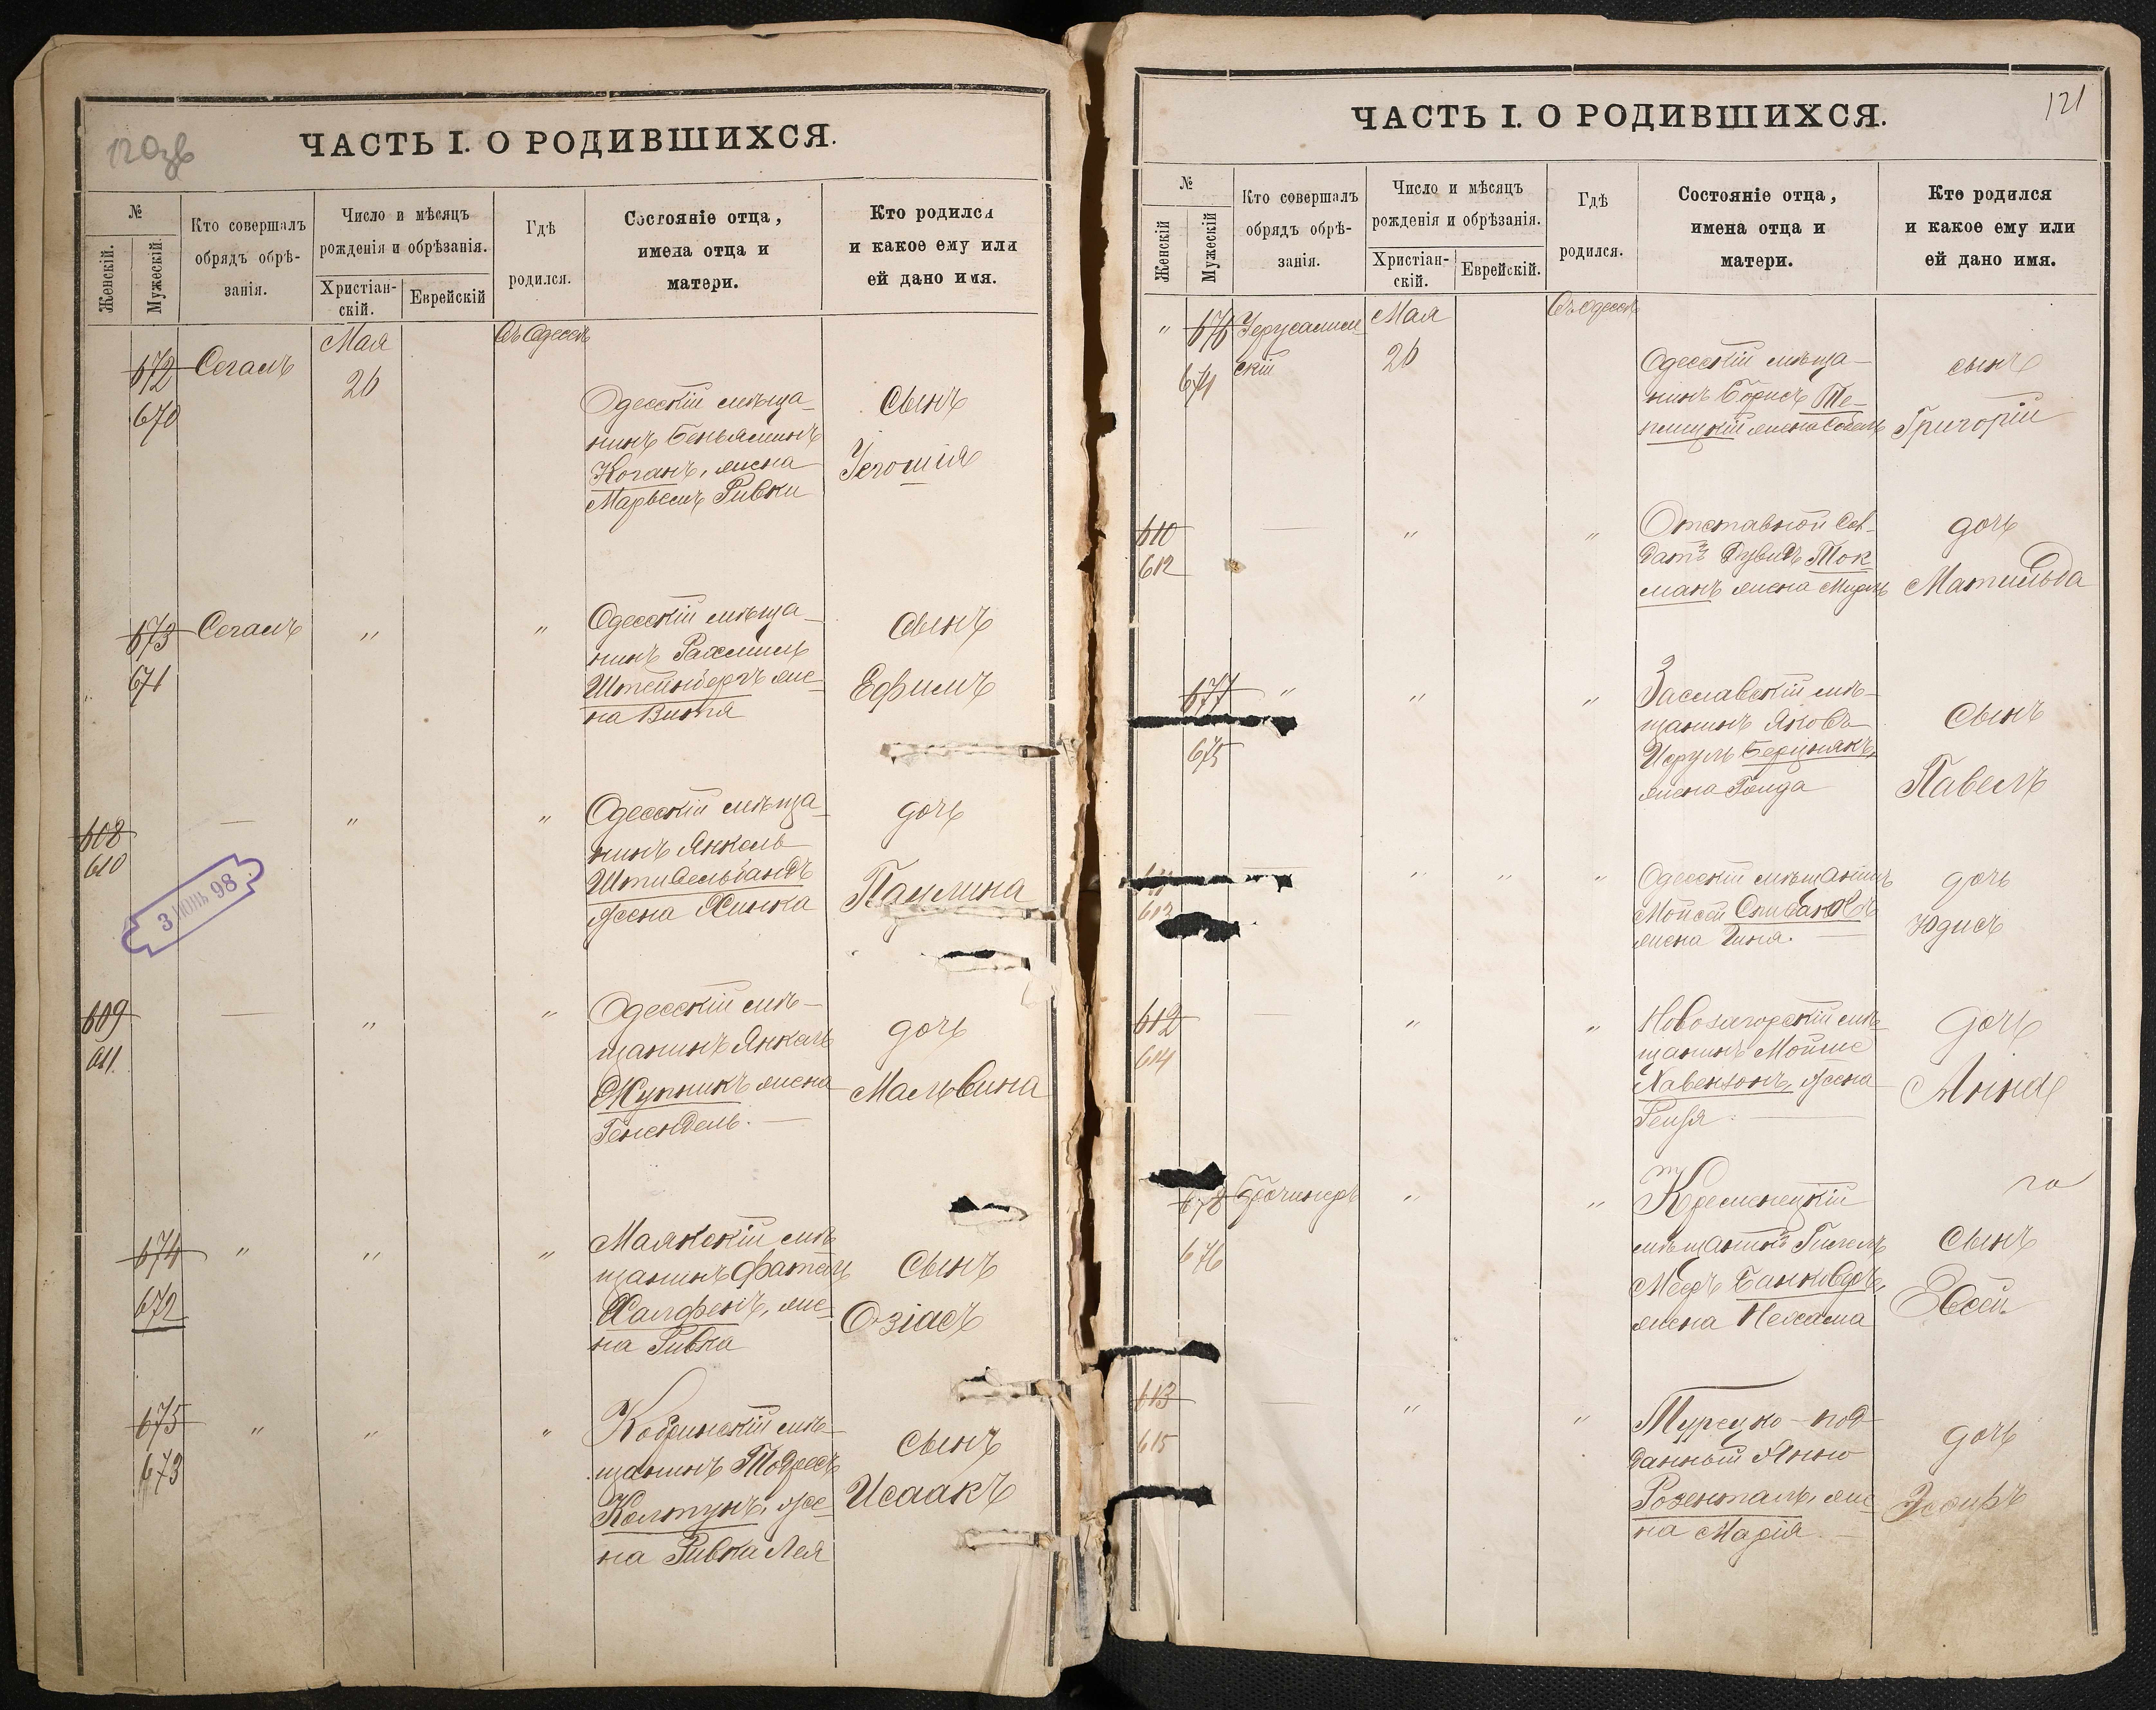 120зв
ЧАСТЬ I. О РОДИВШИХСЯ.
№
Женскій.
Мужескій.
Кто совершалъ
обрядъ обрѣ-
занія.
Число и мѣсяцъ
рожденія и обрѣзанія.
Христіан-
скій.
Еврейскій
Гдѣ
родился.
Состояніе отца,
имена отца и
матери.
Кто родился
и какое ему или
ей дано имя.
672
670
Сегалъ
Мая
26
Въ Одессѣ
Одесскій мѣща-
нинъ Беньяминъ
Коганъ, жена
Марьемъ Ривки
сынъ
Іегошія
673
671
Сегалъ
"
"
Одесскій мѣща-
нинъ Рахмиль
Штейнбергъ же-
на Витя
сынъ
Ефимъ
608
610
—
"
"
Одесскій мѣща-
нинъ Янкель
Штивельбандъ
жена Хинка
дочь
Паулина
3 ІЮНЬ 98
609
611.
—
"
"
Одесскій мѣ-
щанинъ Янкель
Жупникъ жена
Генендель. —
дочь
Мальвина
674
672
"
"
"
Маякскій мѣ
щанинъ
Халфенъ, же-
на Ривка
сынъ
Озіасъ
675
673
"
"
"
Кобринскій мѣ-
щанинъ Тодресъ
Колтунъ, же-
на Ривка Лея
сынъ
Исаакъ
121
ЧАСТЬ I. О РОДИВШИХСЯ.
№
Женскій
Мужескій
Кто совершалъ
обрядъ обрѣ-
занія.
Число и мѣсяцъ
рожденія и обрѣзанія.
Христіан-
скій.
Еврейскій.
Гдѣ
родился.
Состояніе отца,
имена отца и
матери.
Кто родился
и какое ему или
ей дано имя.
"
676
674
Іерусалим
скій
Мая
26
Въ Одессѣ
Одесскій мѣща-
нинъ Борисъ Те-
плицкій жена
сынъ
Григорій
610
612
—
"
"
Отставной сол-
датъ Дувидъ Ток
манъ жена
дочь
Матильда
677
675
"
"
"
Заславскій мѣ-
щанинъ Яковъ
Исруль
жена Голда
сынъ
Павелъ
613
—
"
"
"
Одесскій мѣщанинъ
Мойсей Спивакъ
жена
дочь
Юдисъ
612
614
—
"
"
мѣ
щанинъ Мойше
Хавензонъ, жена
Рейзя. —
дочь
Анна
678
676
"
"
Кременецкій
мѣщанинъ
Мееръ
жена Нехама
го
сынъ
Евсей
613
615
—
"
"
Турецко-под-
данный
Розенталь, же
на Марія. —
дочь
Эсѳирь